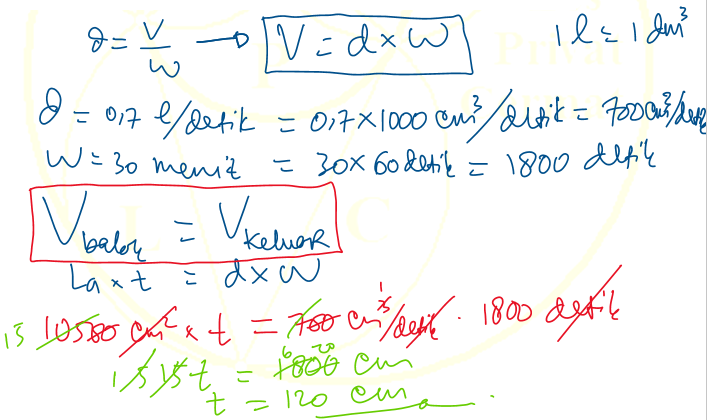 d = V/W → V = d x W 1 l = 1 dm³
d = 0,7 l/detik = 0,7 x 1000 cm³/detik = 700 cm³/detik
W = 30 menit = 30 x 60 detik = 1800 detik
V balok = V keluar
La x t = d x W
15 10500 cm² x t = 700 cm³/detik . 1800 detik
15 t = 1800 cm
t = 120 cm